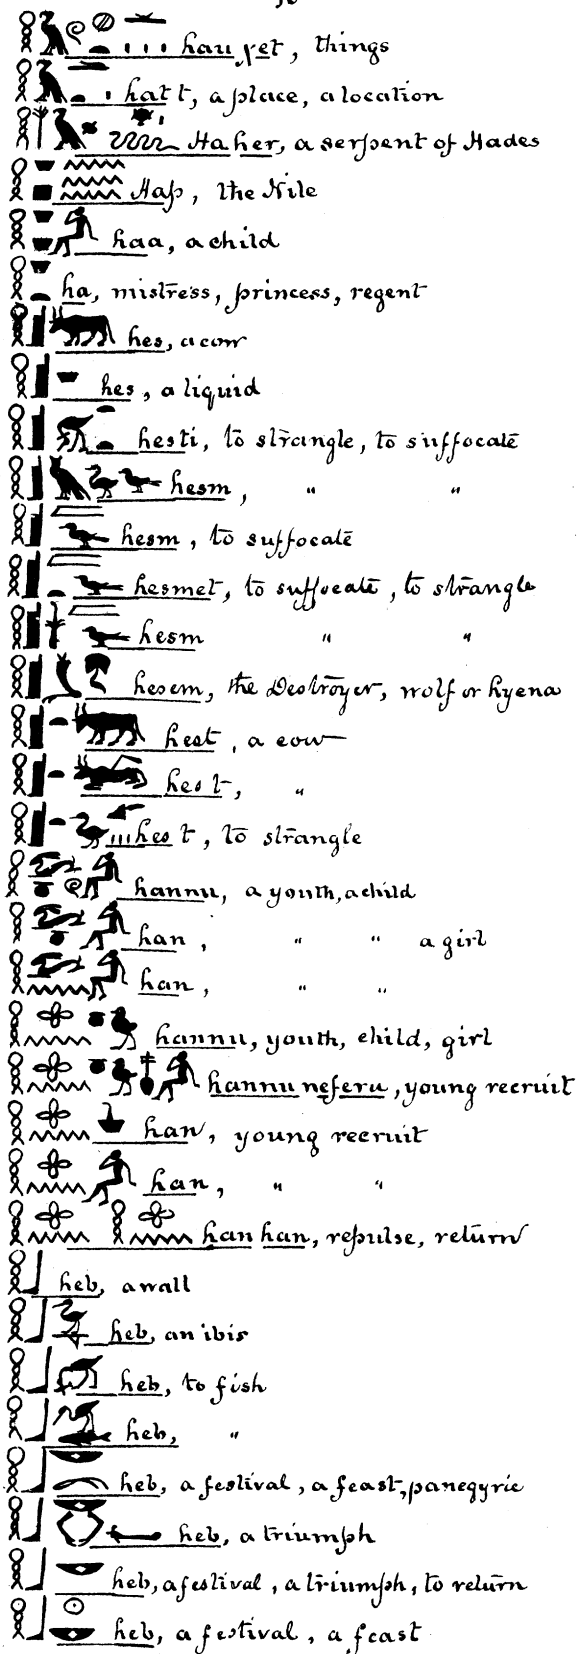 hau χet, things
hatt, a place, a location
Haher, a serpent of Hades
Hap, the Nile
haa, a child
ha, mistress, princess, regent
hes, a cow
hes, a liquid
hesti, to strangle, to suffocate
hesm, " "
hesm, to suffocate
hesmet, to suffocate, to strangle
hesm " "
hesem, the Destroyer, wolf or hyena
hest, a cow
hest, "
hest, to strangle
hannu, a youth, a child
han, " " a girl
han, " "
hannu, youth, child, girl
hannu neferu, young recruit
han, young recruit
han, " "
han han, repulse, return
heb, a wall
heb, an ibis
heb, to fish
heb, "
heb, a festival, a feast, panegyric
heb, a triumph
heb, a festival, a triumph, to return
heb, a festival, a feast